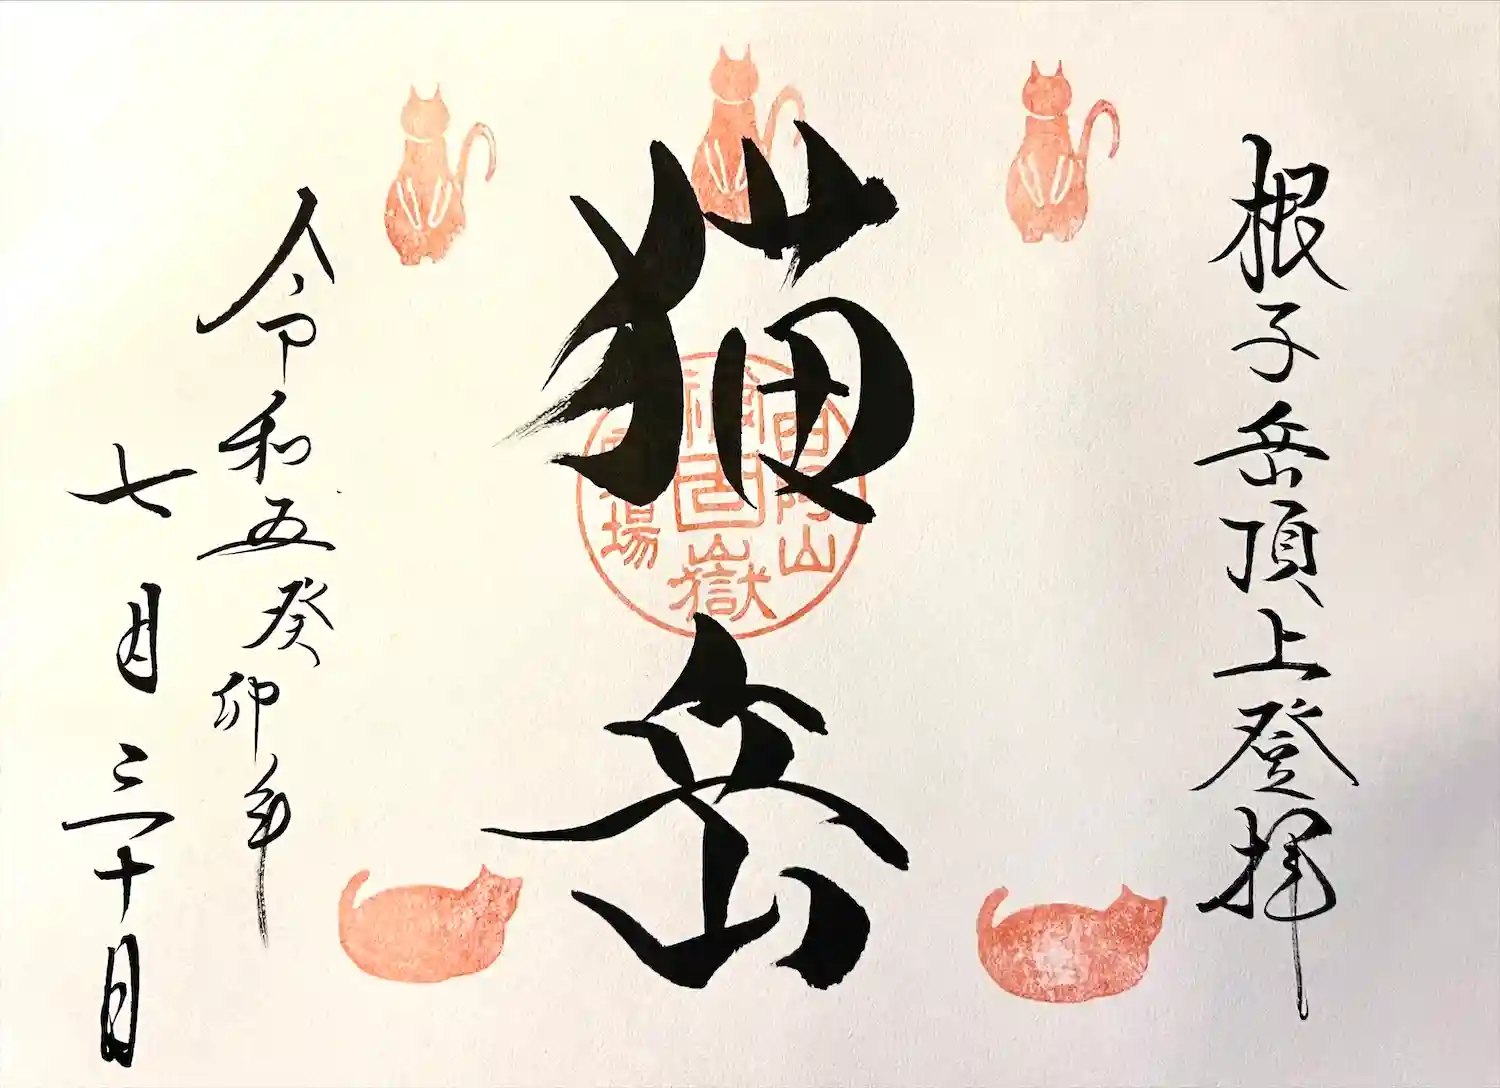 根子岳頂上登拝
猫岳
西阿山
嶽
場
令和五癸卯年
七月三十日